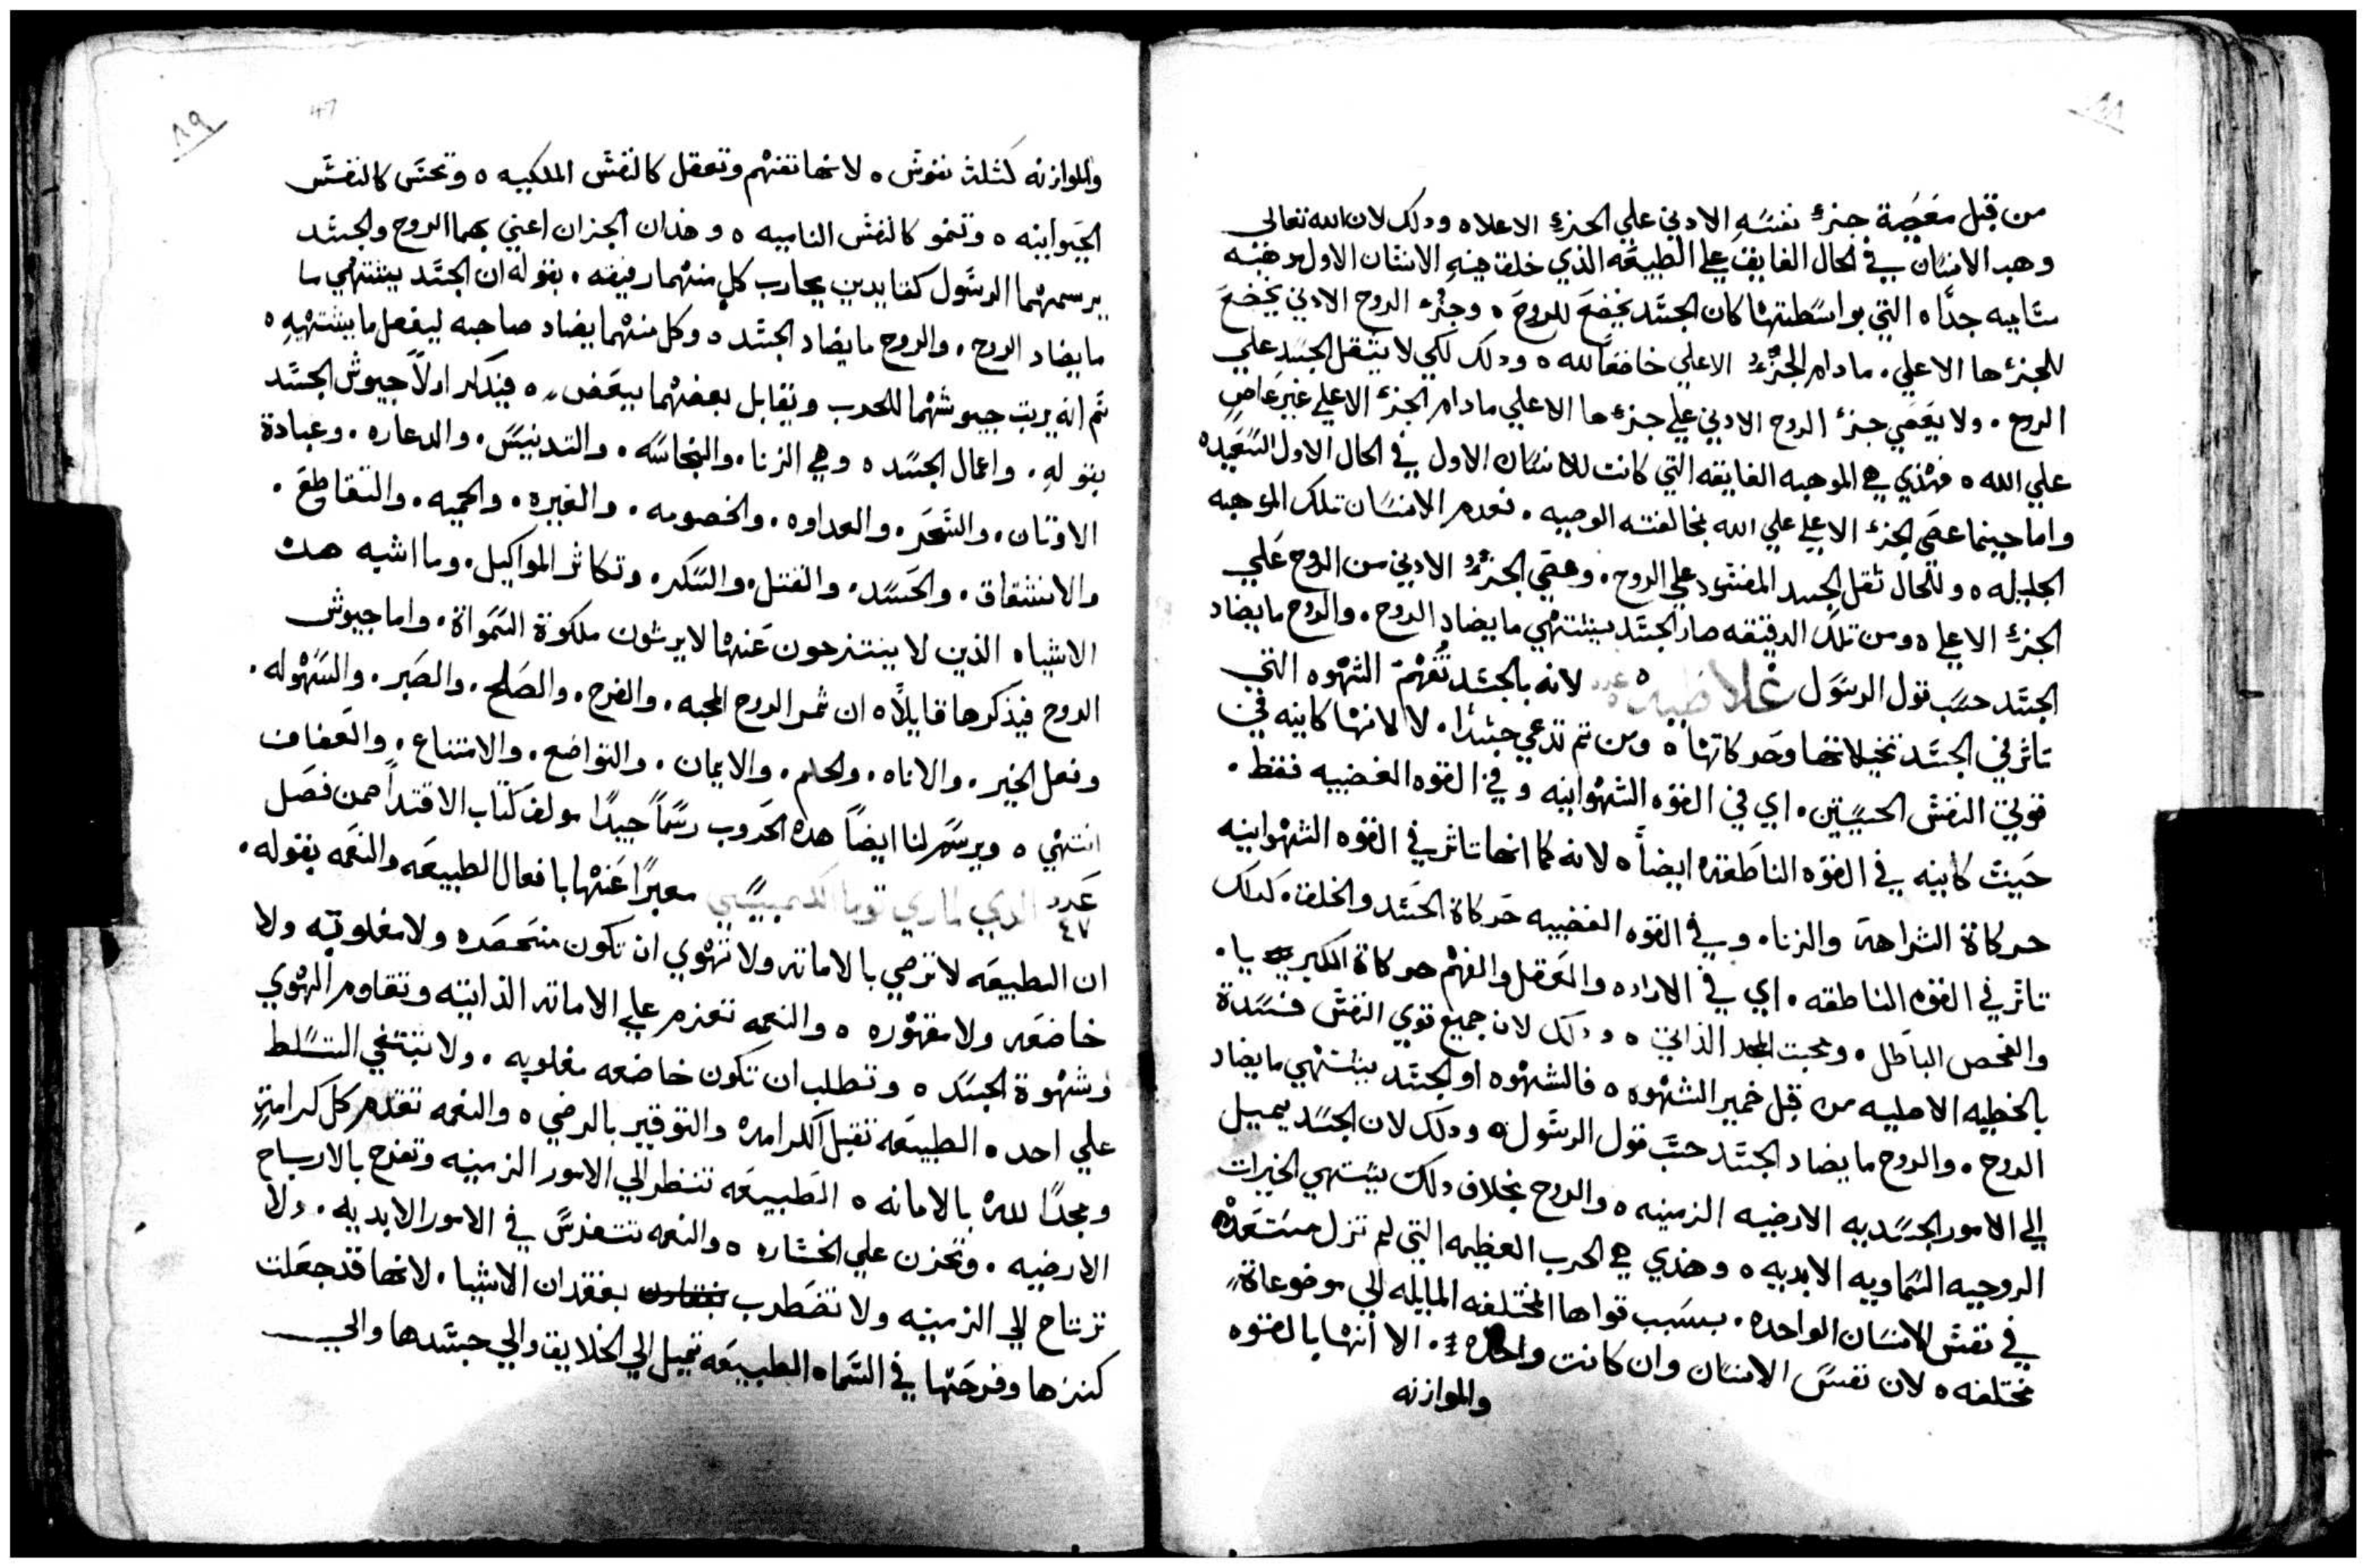 ٨٨
من قبل معصية جزء نفسه الادني علي الجزء الاعلاه ودلك لان الله تعالى
وهب الانسان في الحال الفايق علي الطبيعه الذي خلق فيه الانسان الاول موهبه
ساميه جدًا ه التي بواسطتها كان الجسد يخضع للروح ه وجزء الروح الادني يخضع
للجزءها الاعلي. مادام الجزء الاعلي خاضعًا لله ه ودلك لكي لا يثقل الجسد علي
الروح. ولا يعصي جزء الروح الادني علي جزءها الاعلي مادام الجزء الاعلي غير عاصٍ
علي الله ه فهذي هي الموهبه الفايقه التي كانت للانسان الاول في الحال الاول السعيده
واما حينما عصي الجزء الاعلي علي الله بمخالفته الوصيه. فعدم الانسان تلك الموهبه
الجليله ه وللحال ثقل الجسد المفسود علي الروح. وعصي الجزء الادني من الروح علي
الجزء الاعلي ه ومن تلك الدقيقه صار الجسد يشتهي ما يضاد الروح. والروح ما يضاد
الجسد حسب قول الرسول غلاطيه ه عدد لانه بالجسد تُفهم الشهوه التي
تاثر في الجسد تخيلاتها وحركاتها ه ومن تم تدعي جسدًا. لا لانها كاينه في
قوتي النفس الحسيتين. اي في القوه الشهوانيه وفي القوه الغضبيه فقط.
حيث كاينه في القوه الناطقه ايضاً ه لانه كما انها تاثر في القوه الشهوانيه
حركاة الشراهة والزنا. وفي القوه الغضبيه حركاة الحسد والخلقه. كدلك
تاثر في القوه الناطقه. اي في الاراده والعقل والفهم حركاة الكبريا.
والفحص الباطل. ومحبت المجد الذاتي ه ودلك لان جميع قوي النفس فسدة
بالخطيه الاصليه من قبل خمير الشهوه ه فالشهوه او الجسد يشتهي ما يضاد
الروح. والروح ما يضاد الجسد حسب قول الرسول ه ودلك لان الجسد يميل
الي الامور الجسديه الارضيه الزمنيه ه والروح بخلاف دلك يشتهي الخيرات
الروحيه السماويه الابديه ه وهذي هي الحرب العظيمه التي لم تزل مستعده
في نفس الانسان الواحده. بسبب قواها المختلفه المايله الي موضوعاةٍ
مختلفه ه لان نفس الانسان وان كانت واحده. الا انها بالقوه
والموازنه
٨٩
47
والموازنه كثلثة نفوس ه لانها تفهم وتعقل كالنفس الملكيه ه وتحس كالنفس
الحيوانيه ه وتنمو كالنفس الناميه ه وهذان الجزان اعني بهما الروح والجسد
يرسمهما الرسول كقايدين يحارب كلٍ منهما رفيقه. بقوله ان الجسد يشتهي ما
ما يضاد الروح. والروح ما يضاد الجسد ه وكل منهما يضاد صاحبه ليفعل ما يشتهيهِ ه
ثم انه يرتب جيوشهما للحرب وتقابل بعضهما ببعض ه فيذكر اولاً جيوش الجسد
بقولهِ. واعمال الجسد ه وهي الزنا. والنجاسه. والتدنيس. والدعاره. وعبادة
الاوتان. والسحر. والعداوه. والخصومه. والغيره. والحميه. والتقاطع.
والانشقاق. والحسد. والقتل. والسكر. وتكاثر المواكيل. وما اشبه هده
الاشياه الذين لا ينتزحون عنها لا يرثون ملكوة السمواة. واما جيوش
الروح فيذكرها قايلاً ه ان ثمر الروح المحبه. والفرح. والصلح. والصبر. والسهوله.
وفعل الخير. والاناه. والحلم. والايمان. والتواضع. والامتناع. والعفاف
انتهي ه ويرسم لنا ايضاً هده الحروب رسماً جيدًا مولف كتاب الاقتدا ضمن فصل
عدد ٤٧ الدي لماري توما الكمبيسي معبرًا عنها بافعال الطبيعه والنعمه بقوله.
ان الطبيعه لا ترضي بالاماته ولا تهوي ان تكون منحصره ولا مغلوبه ولا
خاضعه ولا مقهوره ه والنعمه تعزم علي الاماته الذاتيه وتقاوم الهوي
وشهوة الجسد ه وتطلب ان تكون خاضعه مغلوبه. ولا تبتغي التسلط
علي احد ه الطبيعه تقبل الكرامه والتوقير بالرضي ه والنعمه تقدم كل كرامةٍ
ومجدًا لله بالامانه ه الطبيعه تنظر الي الامور الزمنيه وتفرح بالارباح
الارضيه. وتحزن علي الخساره ه والنعمه تتفرس في الامور الابديه. ولا
ترتاح الي الزمنيه ولا تضطرب بفقدان الاشيا. لانها قد جعلت
كنزها وفرحتها في السماه الطبيعه تميل الي الخلايق والي جسدها والي